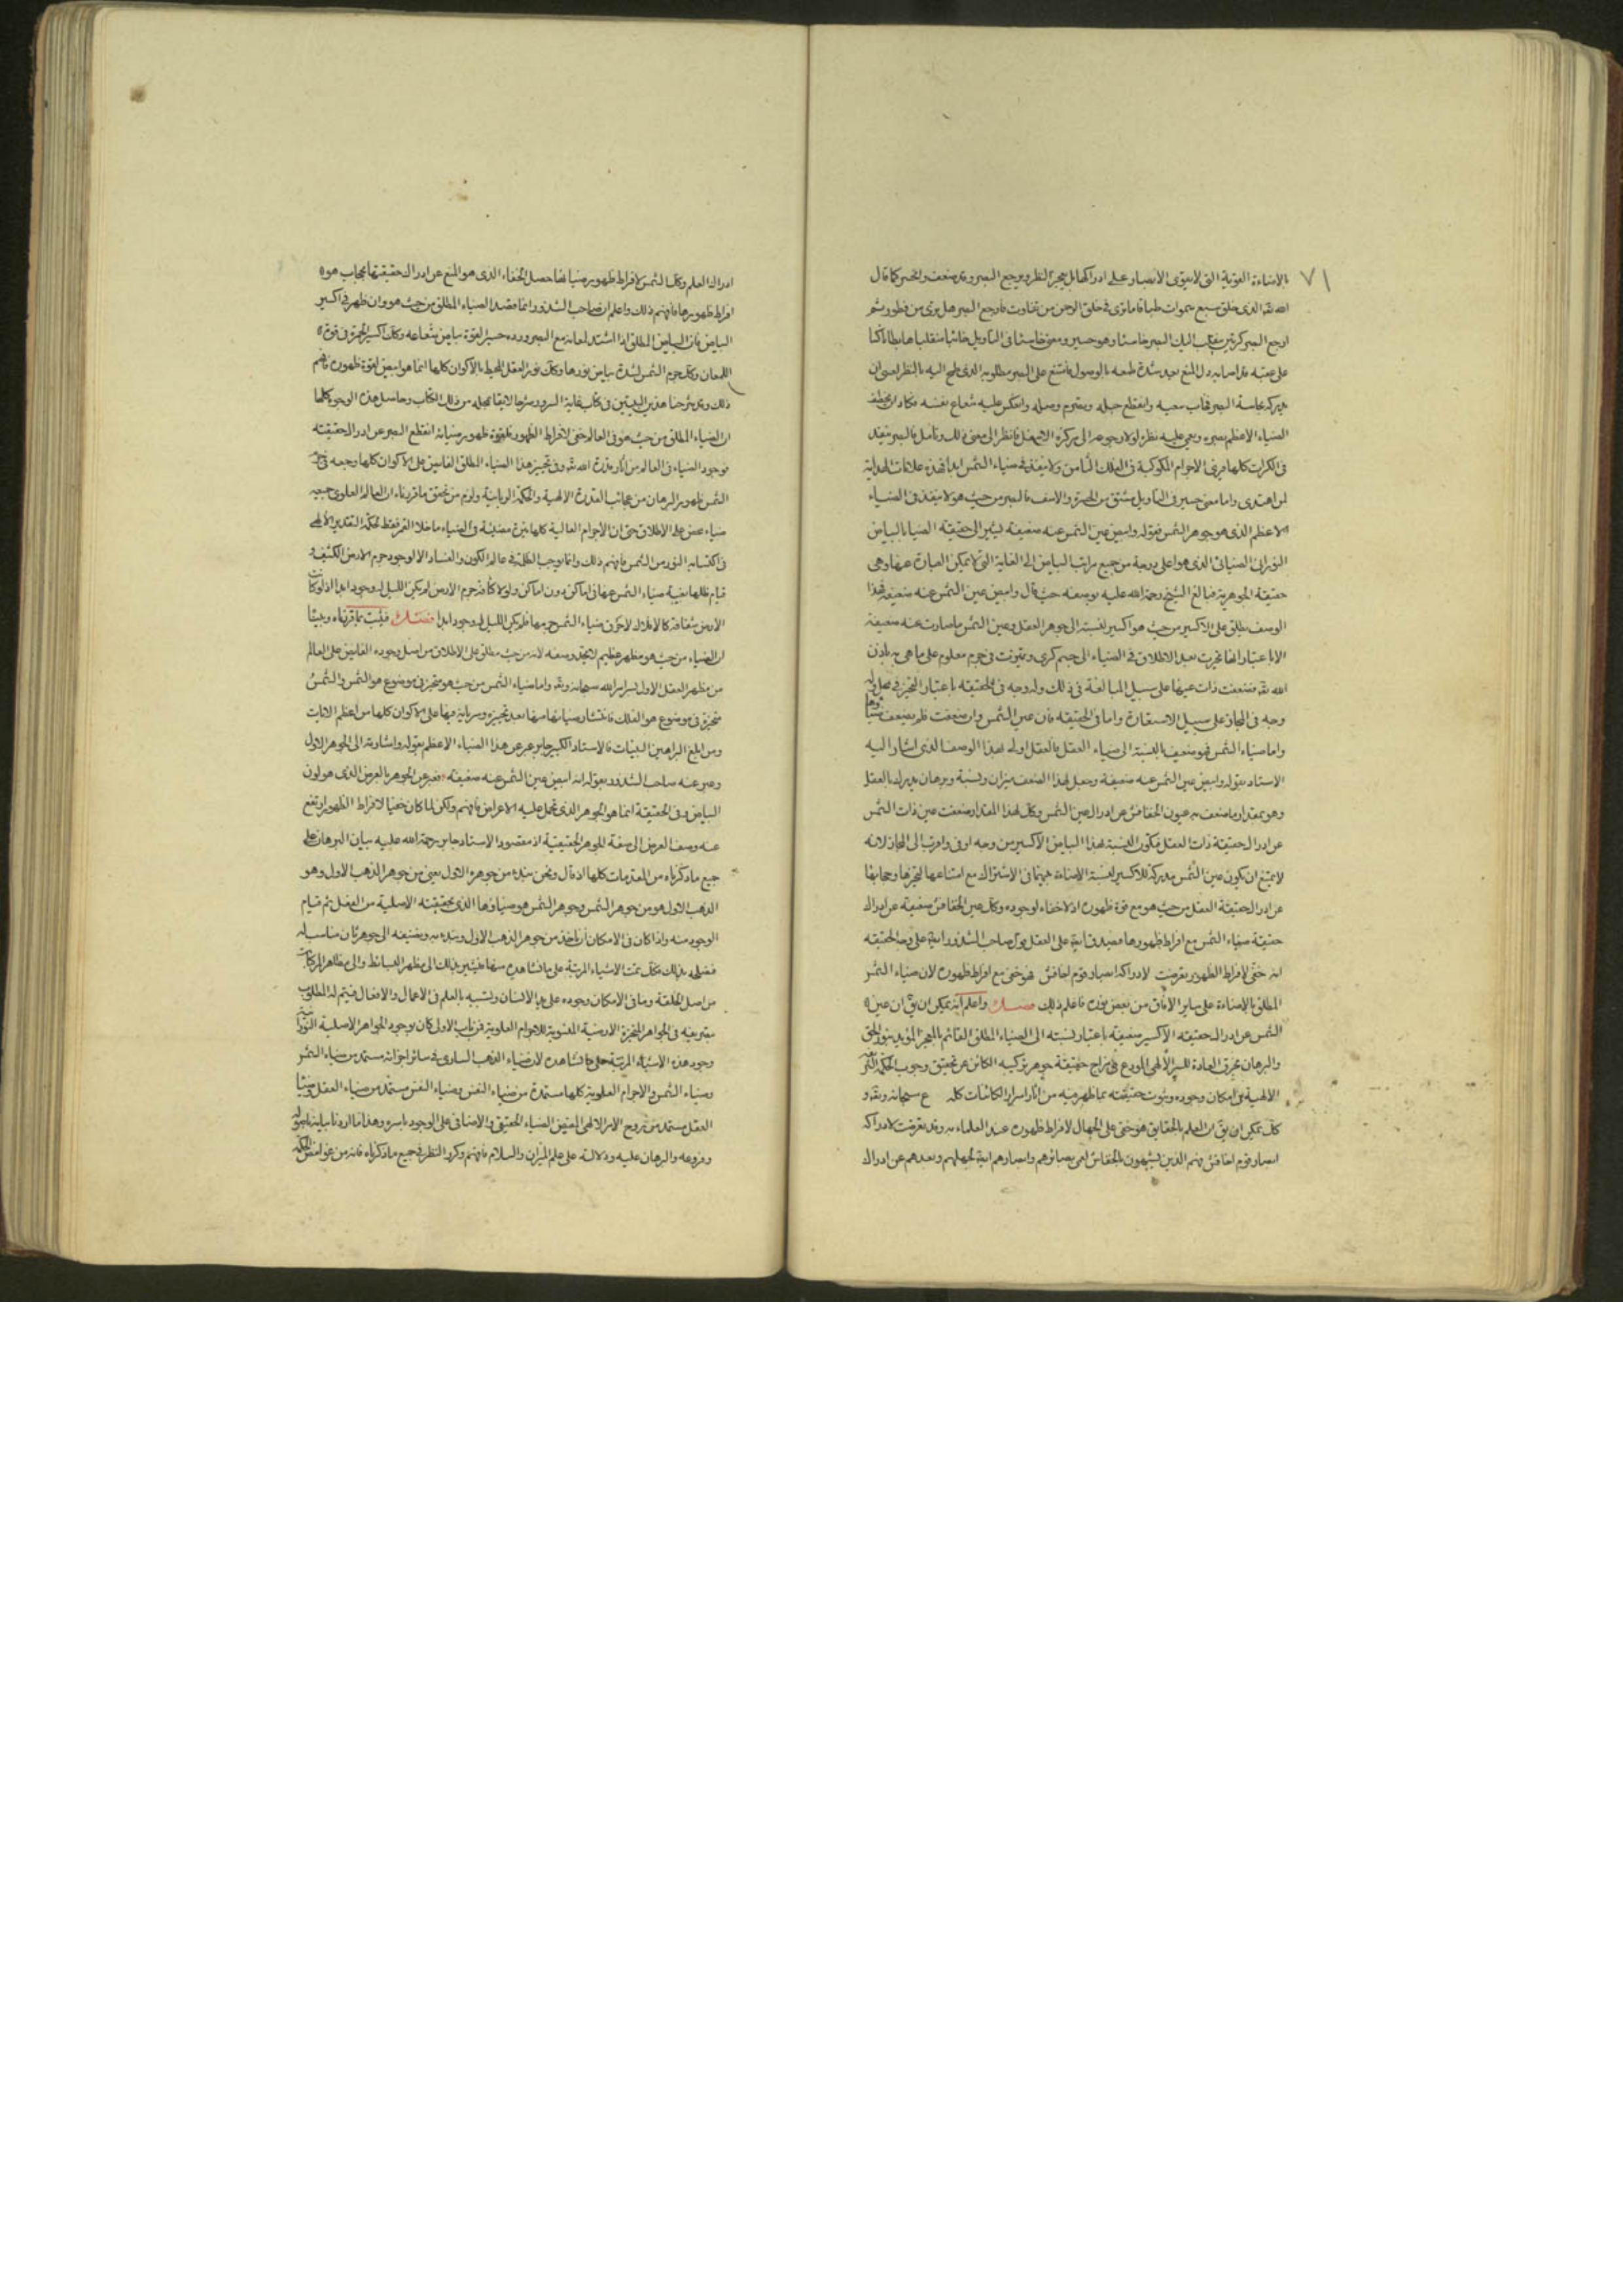 ٧١
بالاضاءة القوية التى لا يقوى الابصار على ادراكها بل يعجز النظر ويرجع البصر وقد ضعف وانحسر كما قال
الله تعالى الذى خلق سبع سموات طباقا ما ترى فى خلق الرحمن من تفاوت فارجع البصر هل ترى من فطور ثم
ارجع البصر كرتين ينقلب اليك البصر خاسئا وهو حسير ومعنى خاسئا فى التأويل خائبا منقلبا
على عقبه بعد شدة طمعه بالوصول فامتنع على البصر مطلوبه الذى طمح اليه بالنظر اعنى ان
يدركه بحاسة البصر فخاب سعيه وانقطع حبله وانعكس عليه شعاع نفسه فكاد ان يخطف
الضياء الاعظم بصره ويعمى عليه نظره لولا رجوعه الى مركزه فانظر الى معنى ذلك وتأمل فالبصر ينفذ
فى الكرات كلها فيرى الاجرام الكوكبية فى الفلك الثامن ولا ينفذ فى ضياء الشمس ابدا فهذه علامات الهداية
لمن اهتدى واما معنى حسير فى التأويل مشتق من الحسرة والاسف فالبصر من حيث هو لا ينفذ فى الضياء
الاعظم الذى هو جوهر الشمس فقوله وابيض عين الشمس عنه ضعيفة يشير الى حقيقة الضيا بالبياض
النورانى الضيائى الذى هو اعلى درجة من جميع مراتب البياض الى الغاية التى لا تمكن العبارة عنها وهى
حقيقة الجوهرية فبالغ الشيخ رحمة الله عليه بوصفه حيث قال وابيض عين الشمس عنه ضعيفة فهذا
الوصف يطلق على الاكسير من حيث هو اكسير لنسبته الى جوهر العقل وعين الشمس ما صارت عنه ضعيفة
الا باعتبار انها تحيزت بعد الاطلاق فى الضياء الى جسم كرى وتقيدت فى جرم معلوم على ما هى به باذن
الله تعالى فضعفت ذات عينها على سبيل المبالغة فى ذلك وله وجه فى الحقيقة باعتبار التحيز فى محل وله
وجه فى المجاز على سبيل الاستعارة واما فى الحقيقة فان عين الشمس وان ضعفت فلم يضعف ضياؤها
واما ضياء الشمس فهو ضعيف بالنسبة الى ضياء العقل فالعقل اولى بهذا الوصف الذى اشار اليه
الاستاذ بقوله وابيض عين الشمس عنه ضعيفة وجعل لهذا الضعف ميزان ونسبة وبرهان يدرك بالعقل
وهو بمقدار ما ضعف به عيون الخفافش عن ادراك عين الشمس وكذلك لهذا المقدار ضعفت عين ذات الشمس
عن ادراك حقيقة ذات العقل فتكون النسبة لهذا البياض الاكسير من وجه اوفى واقرب الى المجاز لانه
لا يمتنع ان يكون عين الشمس مدركة للاكسير لنسبة الاضاءة بينهما فى الاشتراك مع امتناعها لتحيزها وحجابها
عن ادراك حقيقة العقل من حيث هو مع قوة ظهوره اذ لا خفاء لوجوده وكذلك عين الخفافش ضعيفة عن ادراك
حقيقة ضياء الشمس مع افراط ظهورها فيصدق ايضا على العقل قول صاحب الشذور ايضا على وجه الحقيقة
انه خفى لافراط الظهور تعرضت لادراكه ابصار قوم اخافش فهو خفى مع افراط ظهوره لان ضياء الشمس
المطلق بالاضاءة على ساير الافاق من بعض نوره فاعلم ذلك فصل واعلم انه يمكن ان يق ان عين
الشمس عن ادراك حقيقة الاكسير ضعيفة باعتبار نسبته الى الضياء المطلق القائم بالمعجز المؤيد بنور الحق
والبرهان بخرق العادة للسر الالهى المودع فى مزاج حقيقة جوهر تركيبه الكائن عن تحقيق وجوب الحكمة
الالهية فى امكان وجوده وثبوت حقيقته بما ظهر فيه من اثار اسرار الكائنات كلها سبحانه وتعالى و
كذلك يمكن ان يق ان العلم بالحقايق هو خفى على الجهال لافراط ظهوره عند العلماء به وقد تعرضت لادراكه
ابصار قوم اخافش وهم الذين يشبهون بالخفاش لعمى بصائرهم وابصارهم ايضا لجهلهم وبعدهم عن ادراك
ادراك العلم وكذلك الشمس لافراط ظهور ضيائها حصل الخفاء الذى هو المنع عن ادراك حقيقتها بحجاب هو
افراط ظهورها فافهم ذلك واعلم ان صاحب الشذور انما قصد الضياء المطلق من حيث هو وان ظهر فى اكسير
البياض فان البياض المطلق اذا اشتد لمعانه منع البصر ورده حسيرا لقوة بياض شعاعه وكذلك اكسير الحمرة فى قوة
اللمعان وكذلك جرم الشمس لشدة بياض نورها وكذلك نور العقل المحيط بالاكوان كلها انما هو ابيض لقوة ظهوره فافهم
ذلك وقد شرحنا هذين البيتين فى كتاب غاية السرور شرحا لايقا بمحله من ذلك الكتاب وحاصل هذه الوجوه كلها
ان الضياء المطلق من حيث هو فى العالم خفى لافراط الظهور فلقوة ظهور ضيائه انقطع البصر عن ادراك حقيقته
فوجود الضياء فى العالم من اثار قدرة الله تعالى وفى تحيز هذا الضياء المطلق الفايض على الاكوان كلها وجمعه فى جرم
الشمس ظهور البرهان من عجائب القدرة الالهية والحكمة الربانية ولزم من تحقق ما قررناه ان العالم العلوى جميعه
ضياء محض على الاطلاق حتى ان الاجرام العالية كلها نيرة مضيئة فى الضياء ما خلا القمر فقط لحكمة التقدير الالهى
فى اكتسابه النور من الشمس فافهم ذلك وانما يوجب الظلمة فى عالم الكون والفساد الا لوجود جرم الارض الكثيف و
قيام ظلها بغيبة ضياء الشمس عنها فى اماكن دون اماكن ولولا كثافة جرم الارض لم يكن لليل وجود ابدا اذ لو كانت
الارض شفافة كالافلاك لاخترق ضياء الشمس جرمها فلم يكن لليل وجود ابدا فصل فثبت بما قررناه وبينا
ان الضياء من حيث هو مظهر عظيم لا يحد وصفه لانه من حيث مطلق على الاطلاق من اصل وجوده الفايض على العالم
من مظهر العقل الاول بسرامر الله سبحانه وتعالى واما ضياء الشمس من حيث هو متحيز فى موضوع هو الشمس والشمس
متحيزة فى موضوع هو الفلك فانتشار ضيائها منها بعد تحيزه وسريانه فيها على الاكوان كلها من اعظم الايات
ومن ابلغ البراهين البينات فالاستاذ الكبير جابر عبر عن هذا الضياء الاعظم بقوله واشارته الى الجوهر الاول
وعبر عنه صاحب الشذور بقوله انه ابيض عين الشمس عنه ضعيفة فعبر عن الجوهر بالعرض الذى هو لون
البياض وفى الحقيقة انما هو الجوهر الذى تحمل عليه الاعراض فافهم ولكن لما كان خفيا لافراط الظهور ارتفع
عنه وصف العرض الى صفة الجوهر الحقيقية اذ مقصود الاستاذ جابر رحمة الله عليه بيان البرهان على
جميع ما ذكرناه من المقدمات كلها اذ قال ونحن نبدء من جوهره الاول يعنى من جوهر الذهب الاول وهو
الذهب الاول هو من جوهر الشمس وجوهر الشمس هو ضياؤها الذى بحقيقته الاصلية من العقل تم قيام
الوجود منه واذا كان فى الامكان ان ياخذ من جوهر الذهب الاول ونبدء به ونضيفه الى جوهر ثان مناسب له
فعلى ذلك فكذلك تمت الاشياء المرتبة على ما نشاهده منها فيشير بذلك الى مظهر البسائط والى مظاهر المركبات
من اصل الخلقة وما فى الامكان وجوده على يد الانسان وتشبيه بالعلم فى الاعمال والافعال فيتم له المطلوب
بتصريفه فى الجواهر المتحيزة الارضية المنسوبة للاجرام العلوية فمن باب الاولى كان بوجود الجواهر الاصلية النورانية
وجود هذه الاشياء المرتبة على ما نشاهده لان ضياء الذهب السارى فى سائر اجزائه مستمد من ضياء الشمس
وضياء الشمس والاجرام العلوية كلها مستمدة من ضياء النفس وضياء النفس مستمد من ضياء العقل وضياء
العقل مستمد من روح الامر الالهى المفيض الضياء الحقيقى والاضافى على الوجود باسره وهذا ما اردنا بيانه
وفروعه والبرهان عليه ودلالته على علم الميزان والسلام فافهم وكرر النظر فى جميع ما ذكرناه فانه من غوامض الحكمة